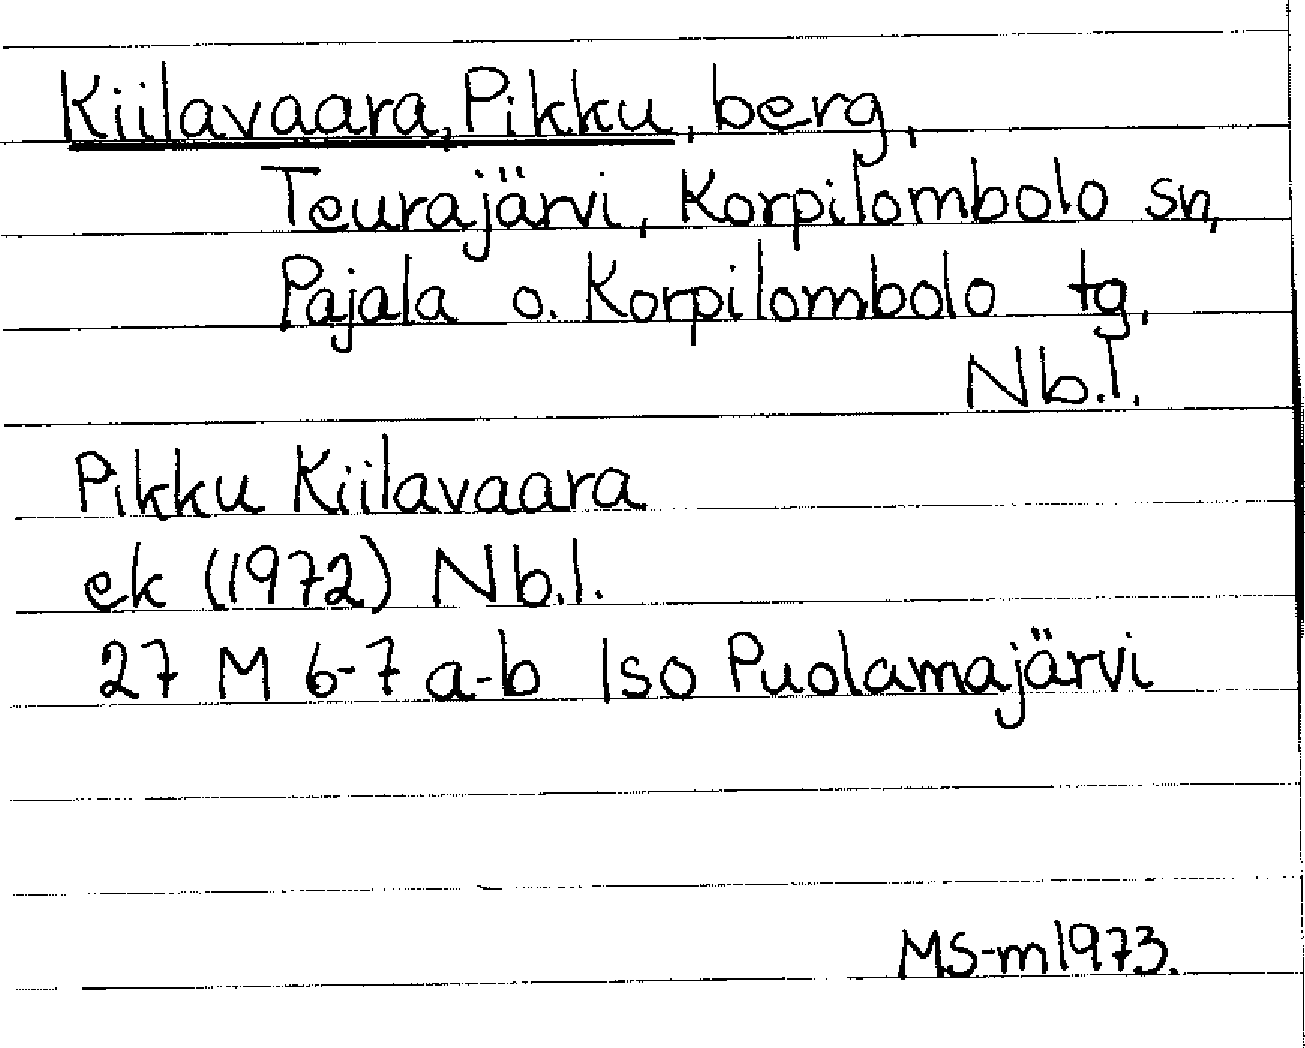 Kiilavaara, Pikku, berg,
Teurajärvi, Korpilombolo sn,
Pajala o. Korpilombolo tg,
Nb.l.
Pikku Kiilavaara
ek (1972) Nb.l.
27 M 6-7 a-b Iso Puolamajärvi
MS-m1973.